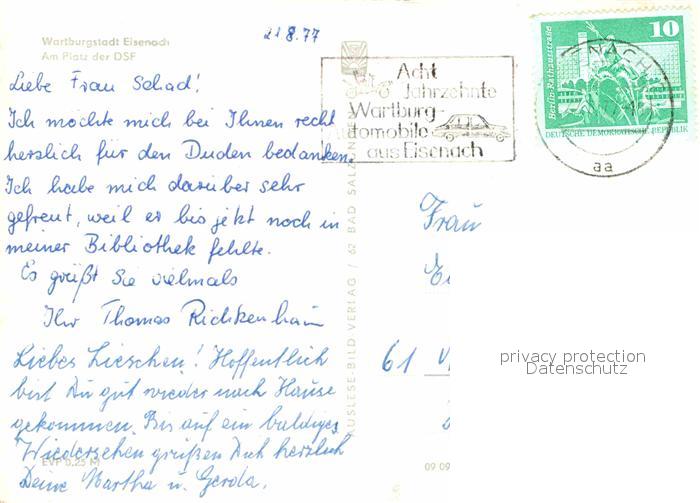 21.8.77
Wartburgstadt Eisenach
Am Platz der DSF
Liebe Frau Schad!
Ich möchte mich bei Ihnen recht
herzlich für den Duden bedanken.
Ich habe mich darüber sehr
gefreut, weil er bis jetzt noch in
meiner Bibliothek fehlte.
Es grüßt Sie vielmals
Ihr Thomas Richkenhain
Liebes Lieschen! Hoffentlich
bist Du gut wieder nach Hause
gekommen. Bis auf ein baldiges
Wiedersehen grüßen Dich herzlich
Deine Martha u. Gerda.
EVP 0,25 M
AUSLESE-BILD-VERLAG / 62 BAD SALZUNGEN
Acht
Jahrzehnte
Wartburg-
automobile
aus Eisenach
10
Berlin-Rathausstraße
DEUTSCHE DEMOKRATISCHE REPUBLIK
EISENACH
aa
Frau
61
privacy protection
Datenschutz
09 09